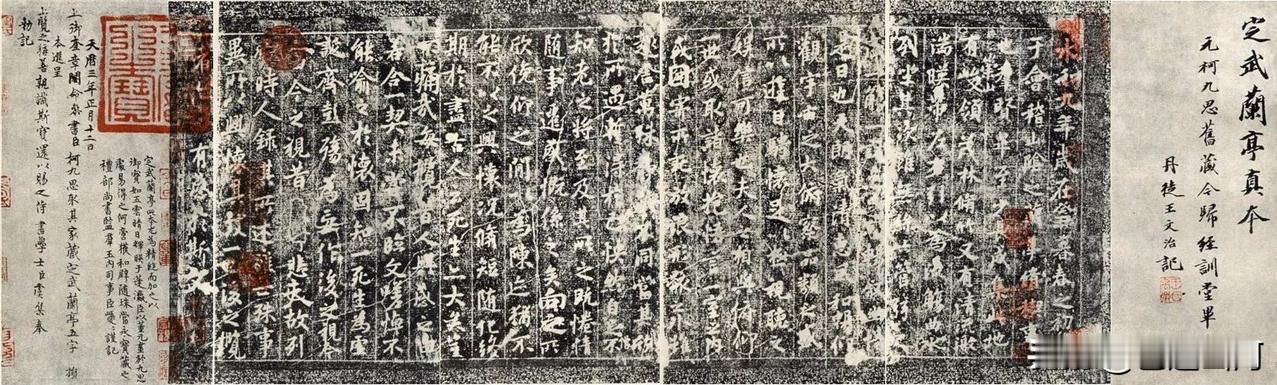 定武蘭亭真本
元柯九思舊藏今歸經訓堂畢
丹徒王文治記
永和九年歲在癸丑暮春之初
于會稽山陰之蘭亭脩稧事
也羣賢畢至少長咸集此地
有峻領茂林脩竹又有清流激
湍暎帶左右引以為流觴曲水
列坐其次雖無絲竹管弦之
是日也天朗氣清惠風和暢仰
觀宇宙之大俯察品類之盛
所以遊目騁懷足以極視聽之
娛信可樂也夫人之相與俯仰
一世或取諸懷抱悟言一室之內
或因寄所託放浪形骸之外雖
趣舍萬殊靜躁不同當其欣
於所遇蹔得於己快然自足不
知老之將至及其所之既惓情
隨事遷感慨係之矣向之所
欣俛仰之閒以為陳迹猶不
能不以之興懷況脩短隨化終
期於盡古人云死生亦大矣豈
不痛哉每攬昔人興感之由
若合一契未嘗不臨文嗟悼不
能喻之於懷固知一死生為虛
誕齊彭殤為妄作後之視今
亦由今之視昔悲夫故列
敘時人錄其所述雖世殊事
異所以興懷其致一也後之攬
者亦將有感於斯文
定武蘭亭此本尤為精絕而加之以
御寶如五雲晴日輝映于蓬瀛臣以董元畫於九思
處易得之何啻獲和璧隨珠當永寶藏之
禮部尚書監羣玉內司事臣巙謹記
天曆三年正月十二日
上御奎章閣命參書臣柯九思取其家藏定武蘭亭五字損
本進呈
上覽之稱善親識斯寶還以賜之侍書學士臣虞集奉
勅記